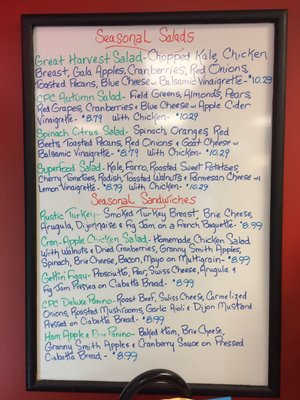 Seasonal Salads
Great Harvest Salad- Chopped Kale, Chicken
Breast, Gala Apples, Cranberries, Red Onions,
Toasted Pecans, Blue Cheese w/ Balsamic Vinaigrette- $10.29
CPC Autumn Salad- Field Greens, Almonds, Pears,
Red Grapes, Cranberries & Blue Cheese w/ Apple Cider
Vinaigrette- $8.79 With Chicken- $10.29
Spinach Citrus Salad- Spinach, Oranges, Red
Beets, Toasted Pecans, Red Onions & Goat Cheese w/
Balsamic Vinaigrette- $8.79 With Chicken- $10.29
Superfood Salad- Kale, Farro, Roasted Sweet Potatoes,
Cherry Tomatoes, Radish, Toasted Walnuts & Parmesan Cheese w/
Lemon Vinaigrette- $8.79 With Chicken- $10.29
Seasonal Sandwiches
Rustic Turkey- Smoked Turkey Breast, Brie Cheese,
Arugula, Dijonnaise & Fig Jam on a French Baguette- $8.99
Cran-Apple Chicken Salad- Homemade Chicken Salad
With Walnuts & Dried Cranberries, Granny Smith Apples,
Spinach, Brie Cheese, Bacon, Mayo on Multigrain- $8.99
Gettin' Figgy- Prosciutto, Pear, Swiss Cheese, Arugula &
Fig Jam Pressed on Ciabatta Bread- $8.99
CPC Deluxe Panino- Roast Beef, Swiss Cheese, Carmelized
Onions, Roasted Mushrooms, Garlic Aioli & Dijon Mustard
Pressed on Ciabatta Bread- $8.99
Ham Apple & Brie Panino- Baked Ham, Brie Cheese,
Granny Smith Apples & Cranberry Sauce on Pressed
Ciabatta Bread- $8.99